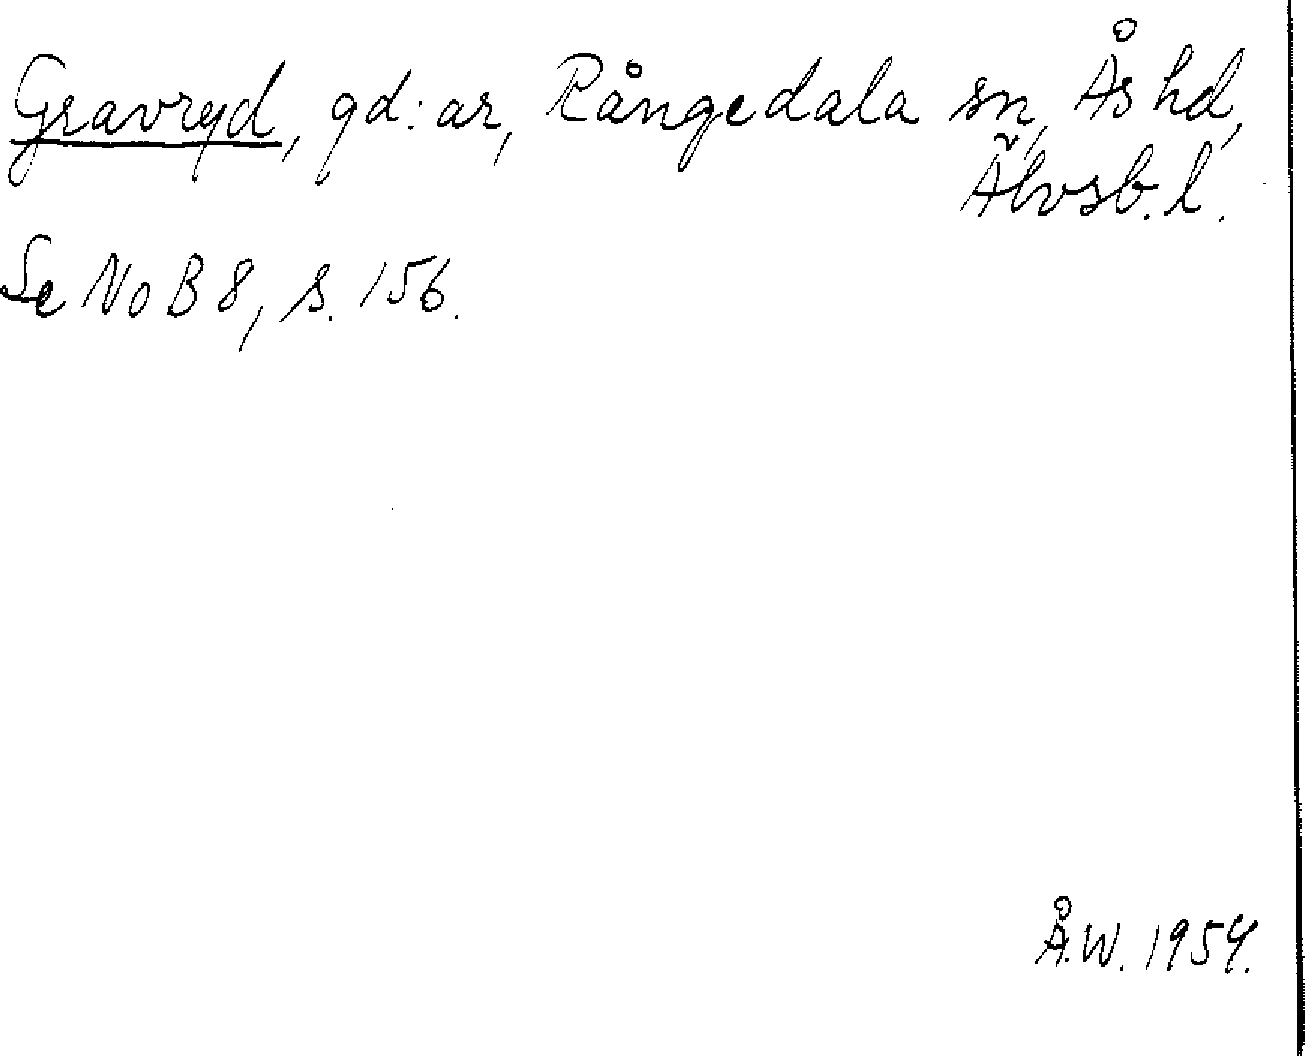 Gravryd, gd:ar, Rångedala sn, Ås hd,
Älvsb. l.
Se NoB 8, s. 156.
Å.W. 1954.